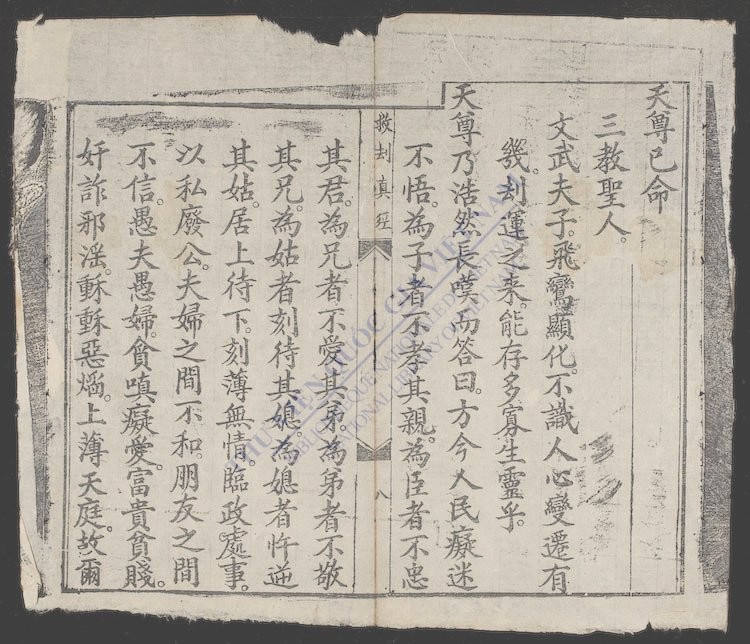 天尊已命
三教聖人。
文武夫子。飛鸞顯化。不識人心變遷有
幾。刦運之来。能存多寡生靈乎。
天尊乃浩然長嘆而答曰。方今人民癡迷
不悟。為子者不孝其親。為臣者不忠
救刦真経
八
其君。為兄者不愛其弟。為弟者不敬
其兄。為姑者刻待其媳。為媳者忤逆
其姑。居上待下。刻薄無情。臨政處事。
以私廢公。夫婦之間不和。朋友之間
不信。愚夫愚婦。貪嗔癡愛。富貴貧賤。
奸詐邪滛。種種惡燄。上薄天庭。故爾
THƯ VIỆN QUỐC GIA VIỆT NAM
BIBLIOTHÈQUE NATIONALE DU VIETNAM
NATIONAL LIBRARY OF VIETNAM